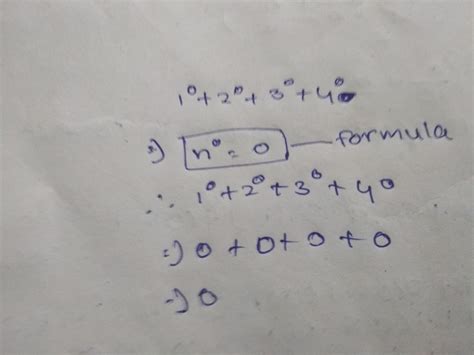 1⁰+2⁰+3⁰+4⁰
⇒) n⁰ = 0 — formula
∴ 1⁰+2⁰+3⁰+40
⇒) 0+0+0+0
⇒) 0